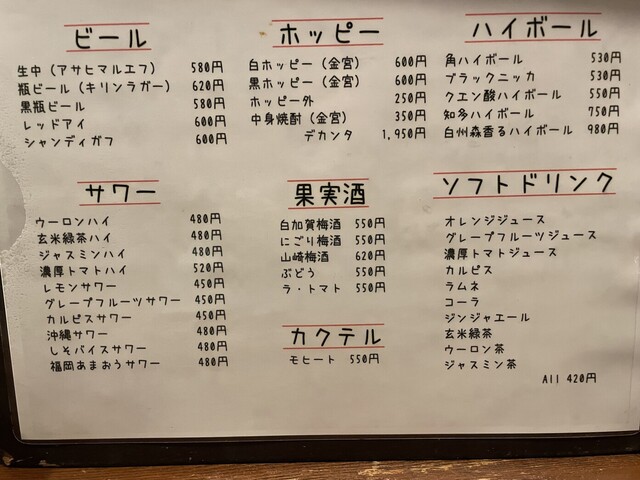 ビール
生中（アサヒマルエフ） 580円
瓶ビール（キリンラガー） 620円
黒瓶ビール 580円
レッドアイ 600円
シャンディガフ 600円
ホッピー
白ホッピー（金宮） 600円
黒ホッピー（金宮） 600円
ホッピー外 250円
中身焼酎（金宮） 350円
デカンタ 1,950円
ハイボール
角ハイボール 530円
ブラックニッカ 530円
クエン酸ハイボール 550円
知多ハイボール 750円
白州森香るハイボール 980円
サワー
ウーロンハイ 480円
玄米緑茶ハイ 480円
ジャスミンハイ 480円
濃厚トマトハイ 520円
レモンサワー 450円
グレープフルーツサワー 450円
カルピスサワー 450円
沖縄サワー 480円
しそバイスサワー 480円
福岡あまおうサワー 480円
果実酒
白加賀梅酒 550円
にごり梅酒 550円
山崎梅酒 620円
ぶどう 550円
ラ・トマト 550円
カクテル
モヒート 550円
ソフトドリンク
オレンジジュース
グレープフルーツジュース
濃厚トマトジュース
カルピス
ラムネ
コーラ
ジンジャエール
玄米緑茶
ウーロン茶
ジャスミン茶
All 420円